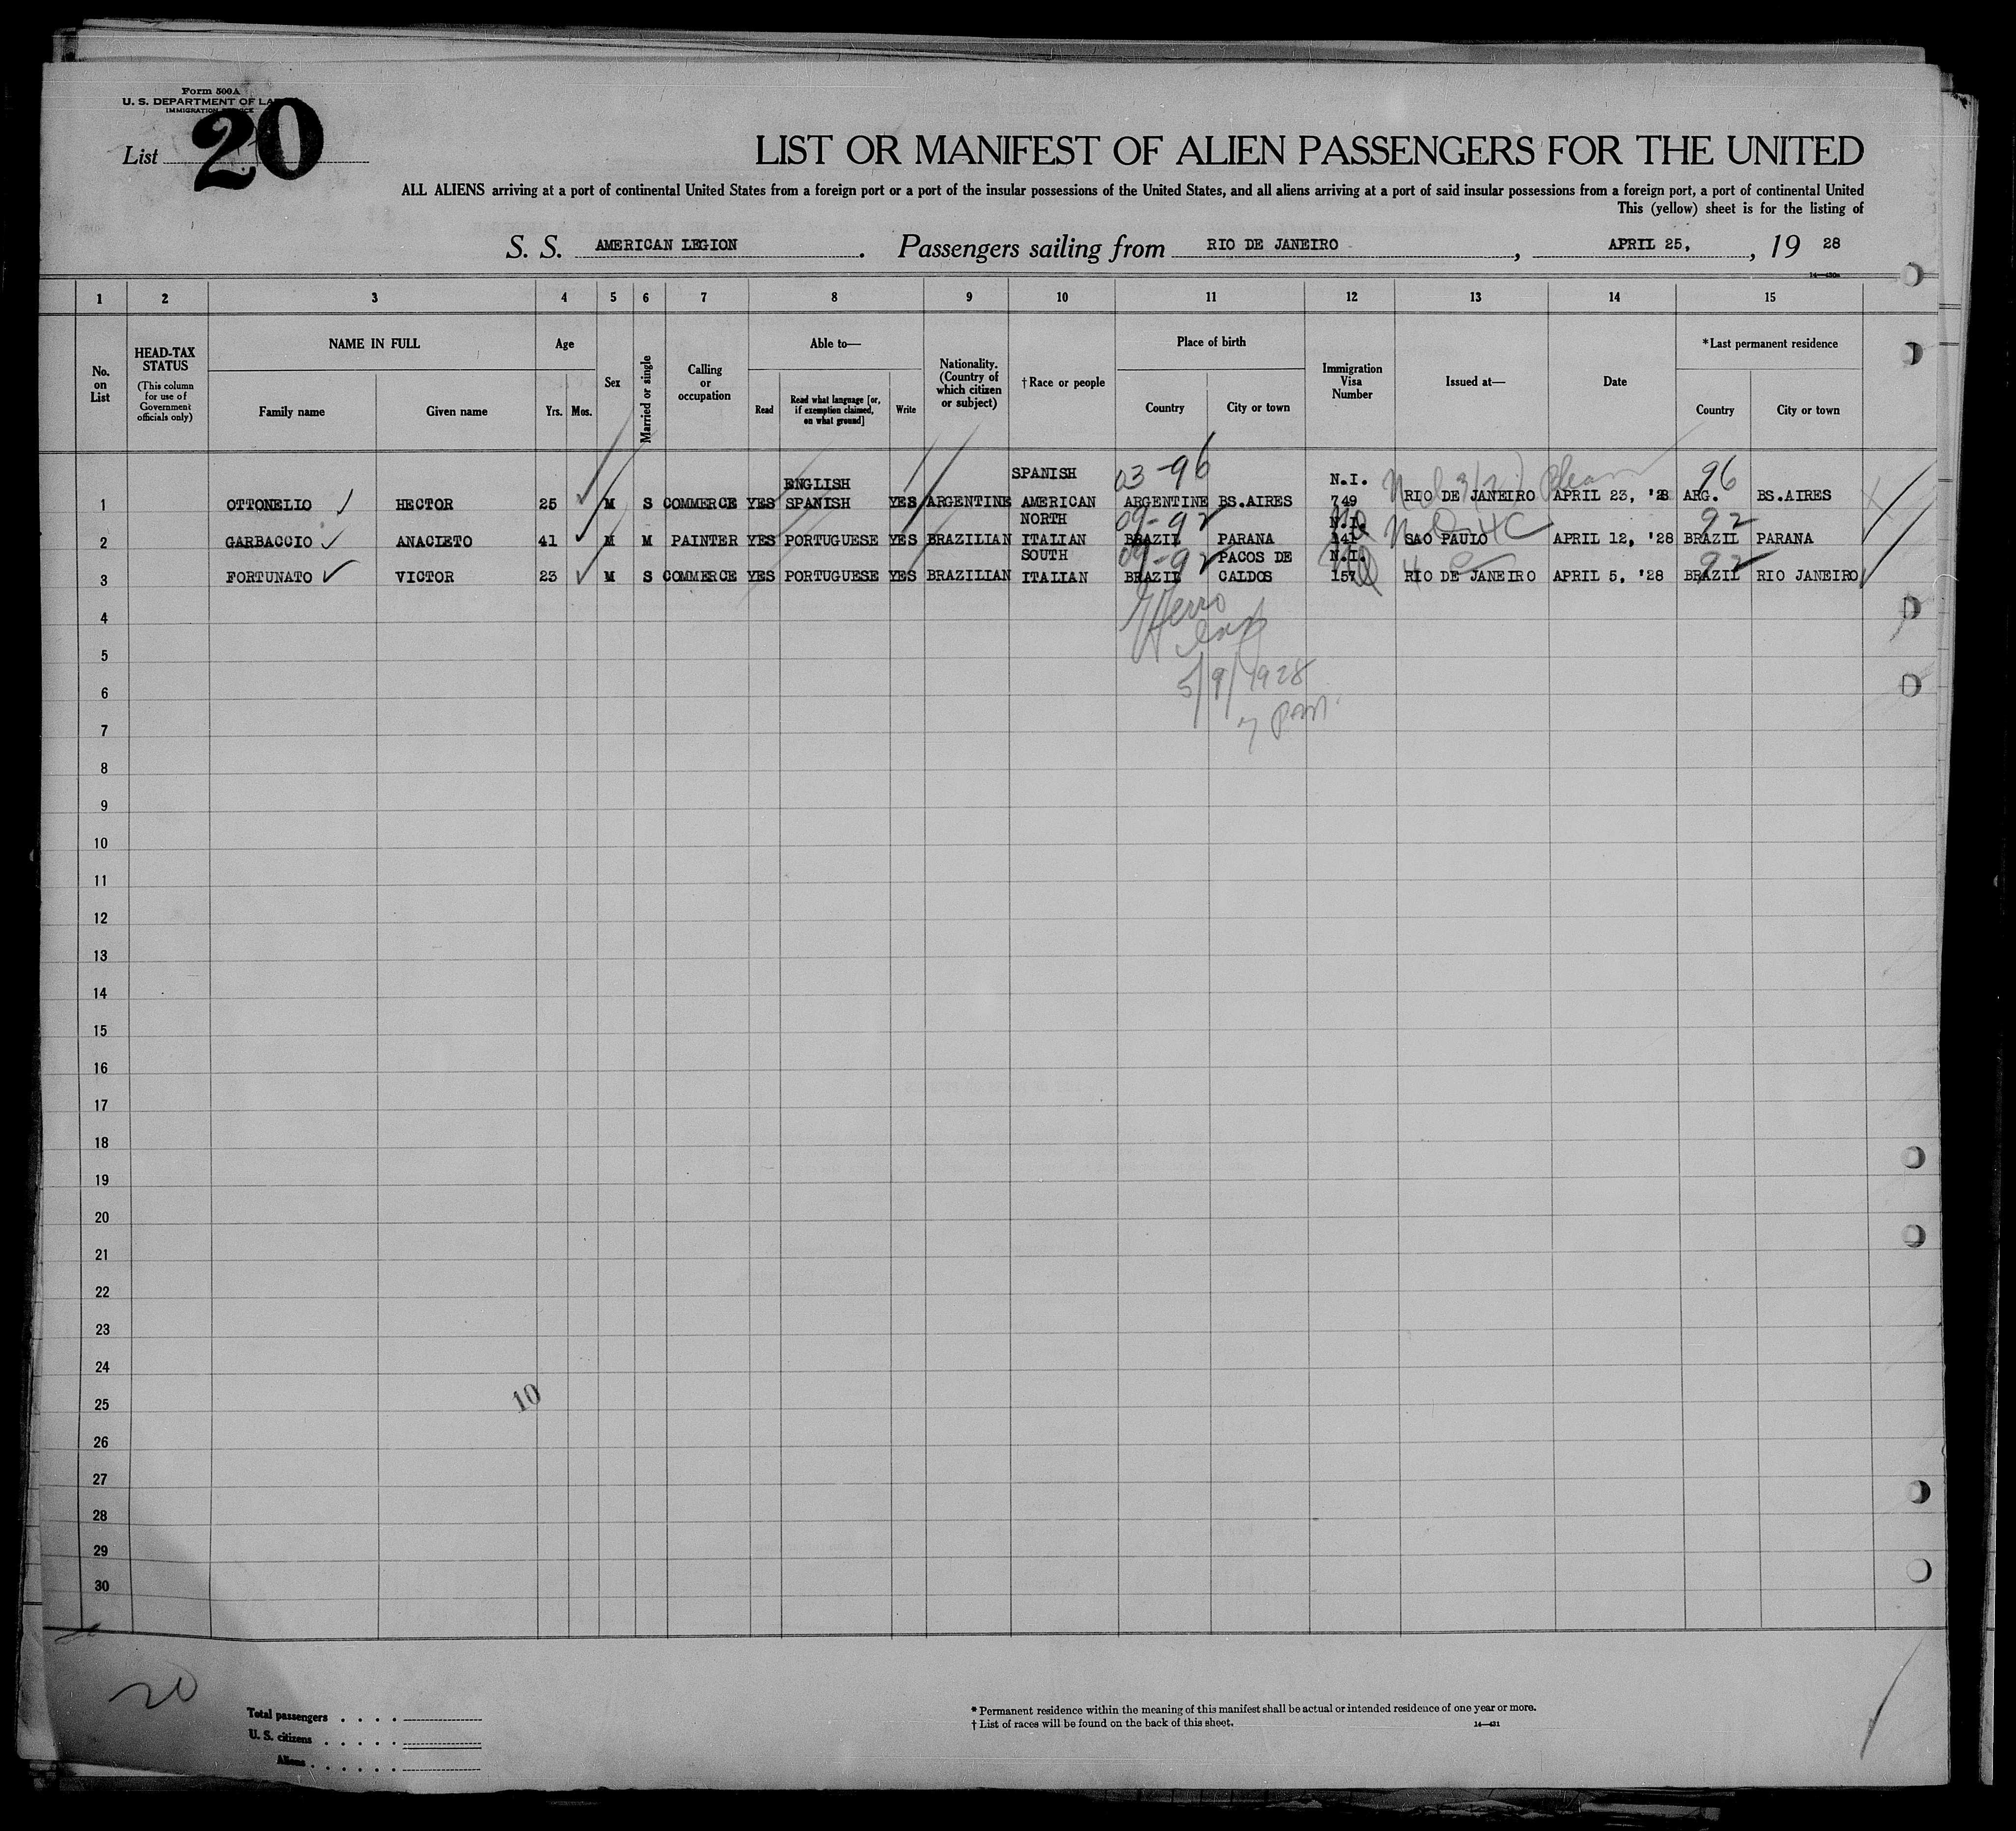 Form 500A
U. S. DEPARTMENT OF LA
IMMIGRATION
List 20
LIST OR MANIFEST OF ALIEN PASSENGERS FOR THE UNITED
ALL ALIENS arriving at a port of continental United States from a foreign port or a port of the insular possessions of the United States, and all aliens arriving at a port of said insular possessions from a foreign port, a port of continental United
This (yellow) sheet is for the listing of
S. S. AMERICAN LEGION. Passengers sailing from RIO DE JANEIRO, APRIL 25, , 19 28
14—430a
1 2 3 4 5 6 7 8 9 10 11 12 13 14 15
No. on List
HEAD-TAX STATUS (This column for use of Government officials only)
NAME IN FULL
Family name Given name
Age
Yrs. Mos.
Sex
Married or single
Calling or occupation
Able to—
Read Read what language [or, if exemption claimed, on what ground] Write
Nationality. (Country of which citizen or subject)
†Race or people
Place of birth
Country City or town
Immigration Visa Number
Issued at—
Date
*Last permanent residence
Country City or town
03-96 96
SPANISH N.I.
ENGLISH
1 OTTONELIO HECTOR 25 M S COMMERCE YES SPANISH YES ARGENTINE AMERICAN ARGENTINE BS.AIRES 749 RIO DE JANEIRO APRIL 23, '28 ARG. BS.AIRES
NORTH 09-92 N.I. 92
2 GARBACCIO ANACIETO 41 M M PAINTER YES PORTUGUESE YES BRAZILIAN ITALIAN BRAZIL PARANA 141 SAO PAULO APRIL 12, '28 BRAZIL PARANA
SOUTH 09-92 PACOS DE N.I. 92
3 FORTUNATO VICTOR 23 M S COMMERCE YES PORTUGUESE YES BRAZILIAN ITALIAN BRAZIL CALDOS 157 RIO DE JANEIRO APRIL 5, '28 BRAZIL RIO JANEIRO
4
5
5/9/1928
6
7 PM.
7
8
9
10
11
12
13
14
15
16
17
18
19
20
21
22
23
24
10
25
26
27
28
29
30
20
Total passengers . . . .
U. S. citizens . . . . .
Aliens . . . . . .
* Permanent residence within the meaning of this manifest shall be actual or intended residence of one year or more.
† List of races will be found on the back of this sheet.
14—431